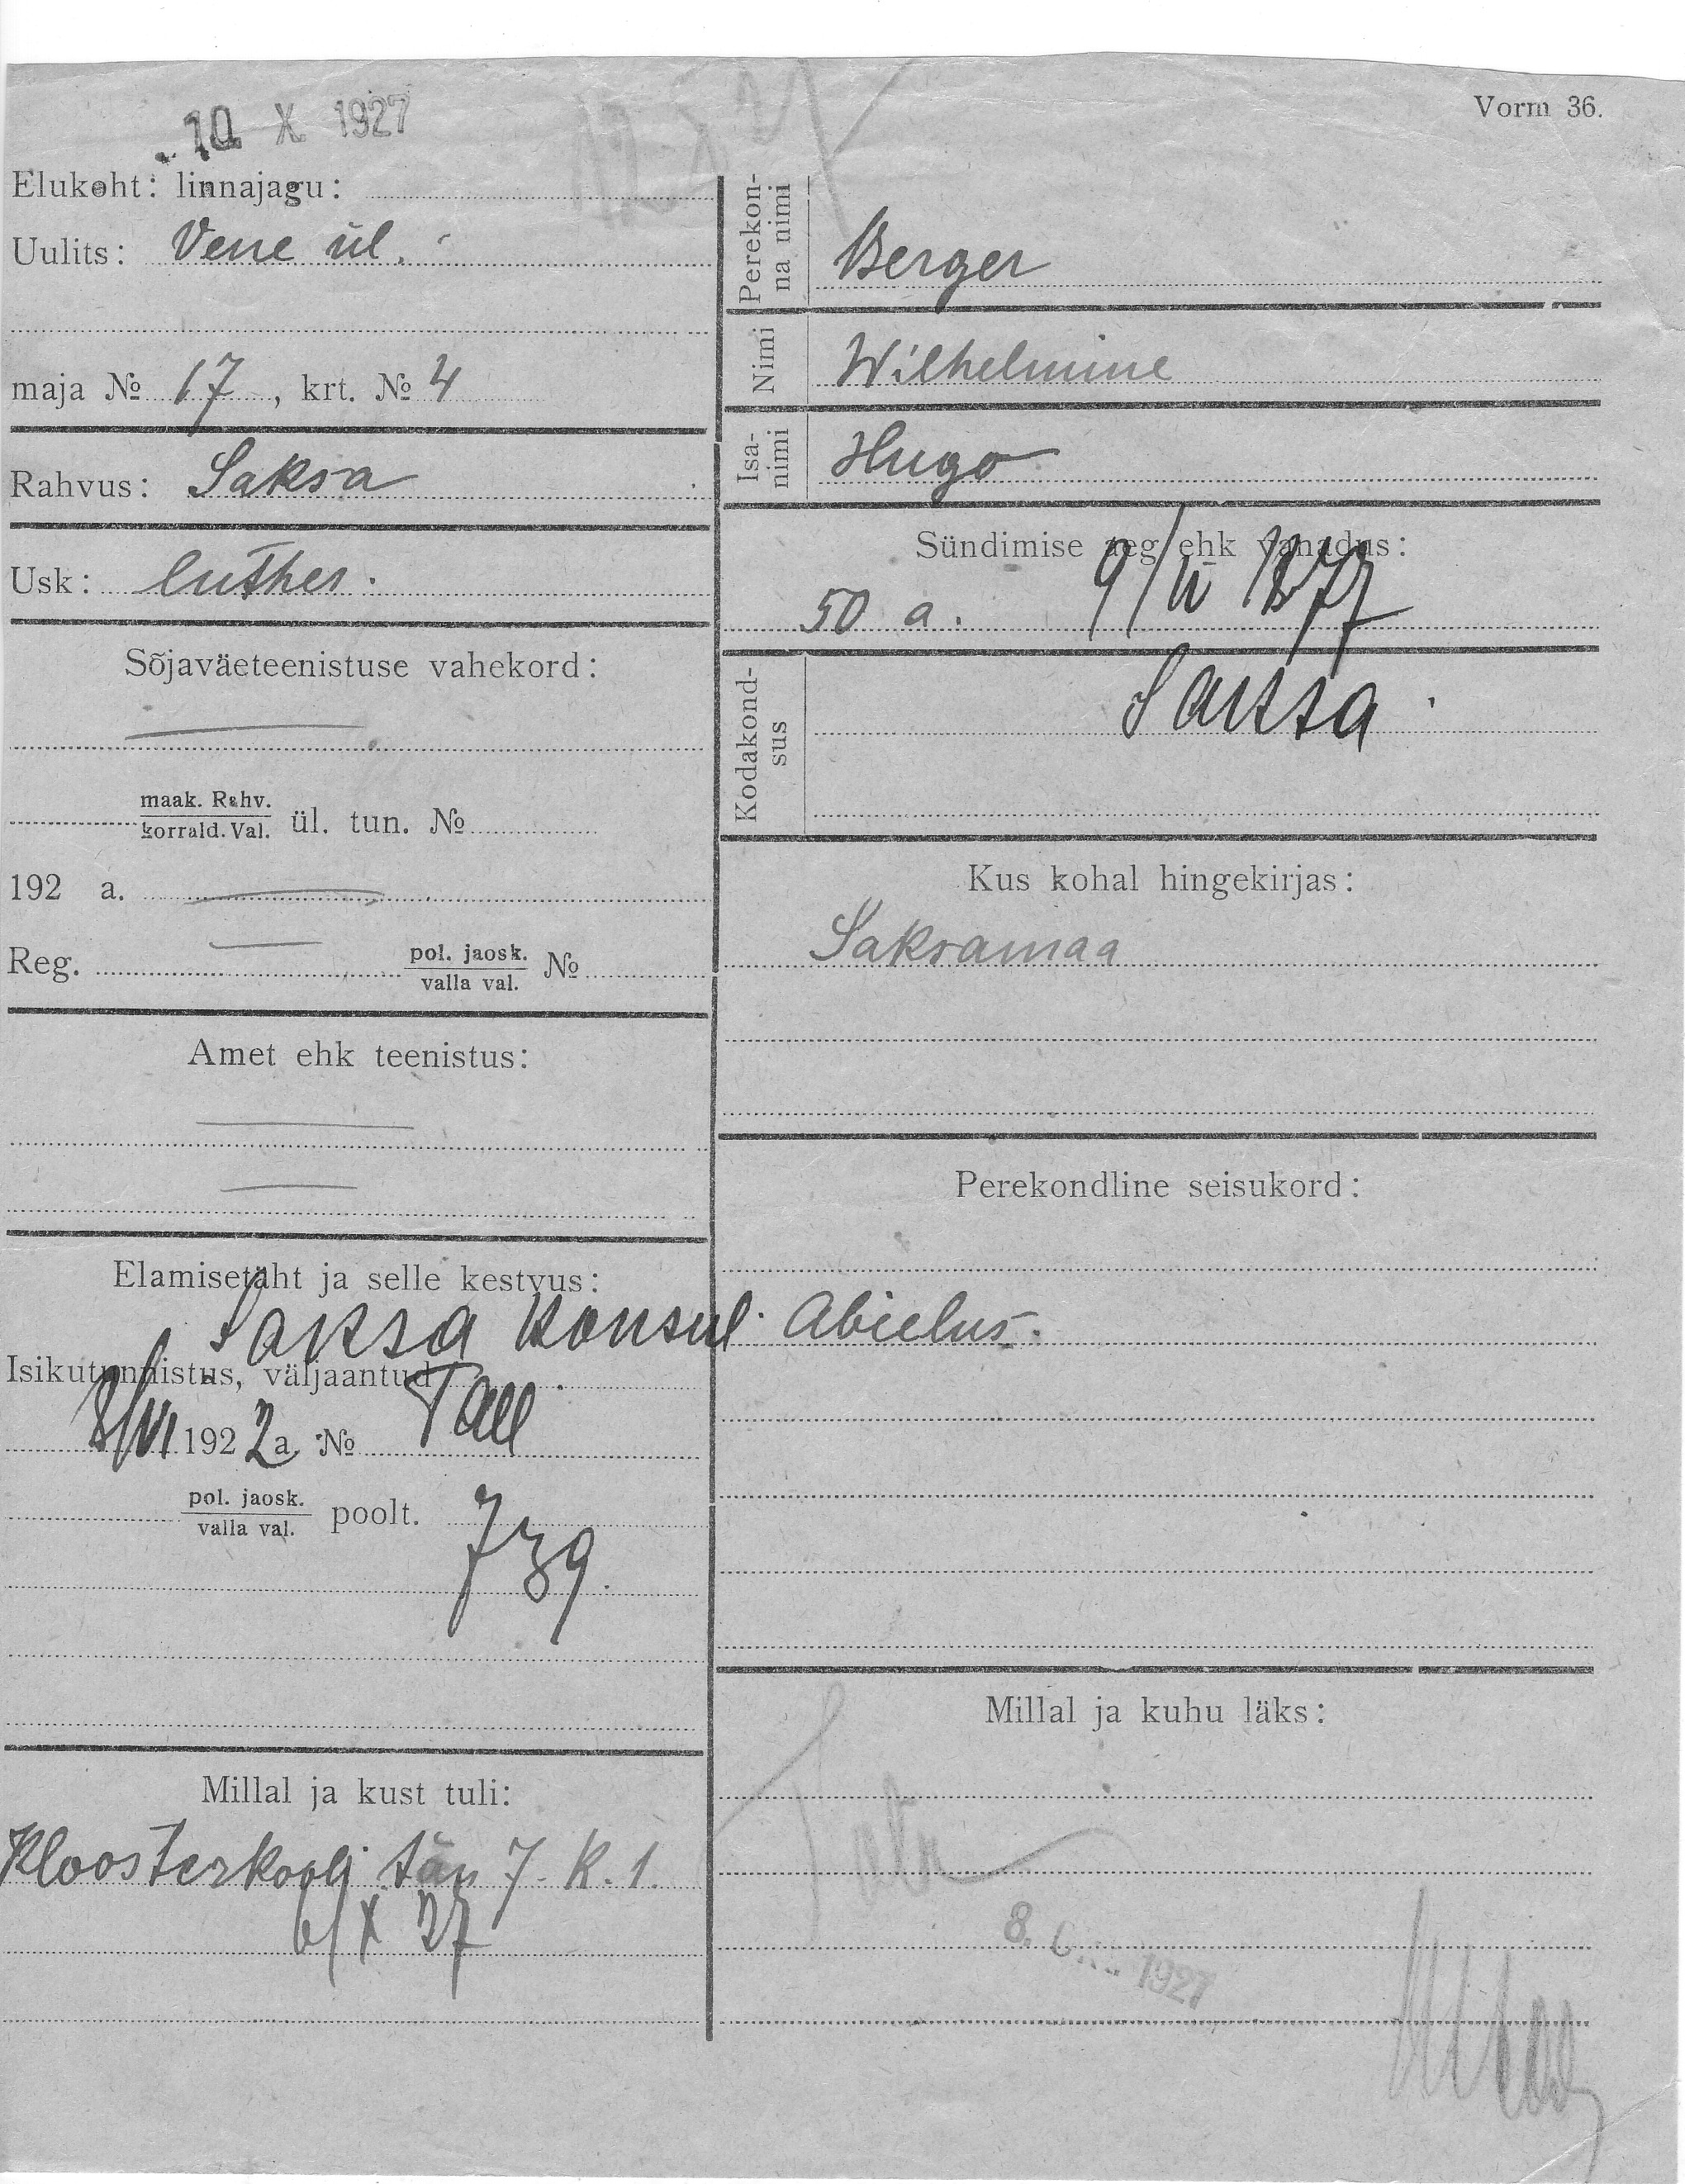 10 X 1927
Vorm 36.
Elukoht: linnajagu:
Uulits: Vene ül.
maja № 17, krt. № 4
Rahvus: Saksa
Usk: luther.
Sõjaväeteenistuse vahekord:
maak. Rahv.
korrald. Val. ül. tun. №
192 a.
Reg. pol. jaosk.
valla val. №
Amet ehk teenistus:
Elamisetäht ja selle kestvus:
Saksa Konsul.
Isikutunnistus, väljaantud
8/VI 1922 a. № Tall
pol. jaosk.
valla val. poolt.
739.
Millal ja kust tuli:
Kloosterkooli tän 7. K. 1.
6/X 27
Perekon-
na nimi
Berger
Nimi
Wilhelmine
Isa-
nimi
Hugo
Sündimise aeg ehk vanadus:
50 a. 9/II 1877
Kodakond-
sus
Saksa.
Kus kohal hingekirjas:
Saksamaa
Perekondline seisukord:
Abielus.
Millal ja kuhu läks:
8. 1927